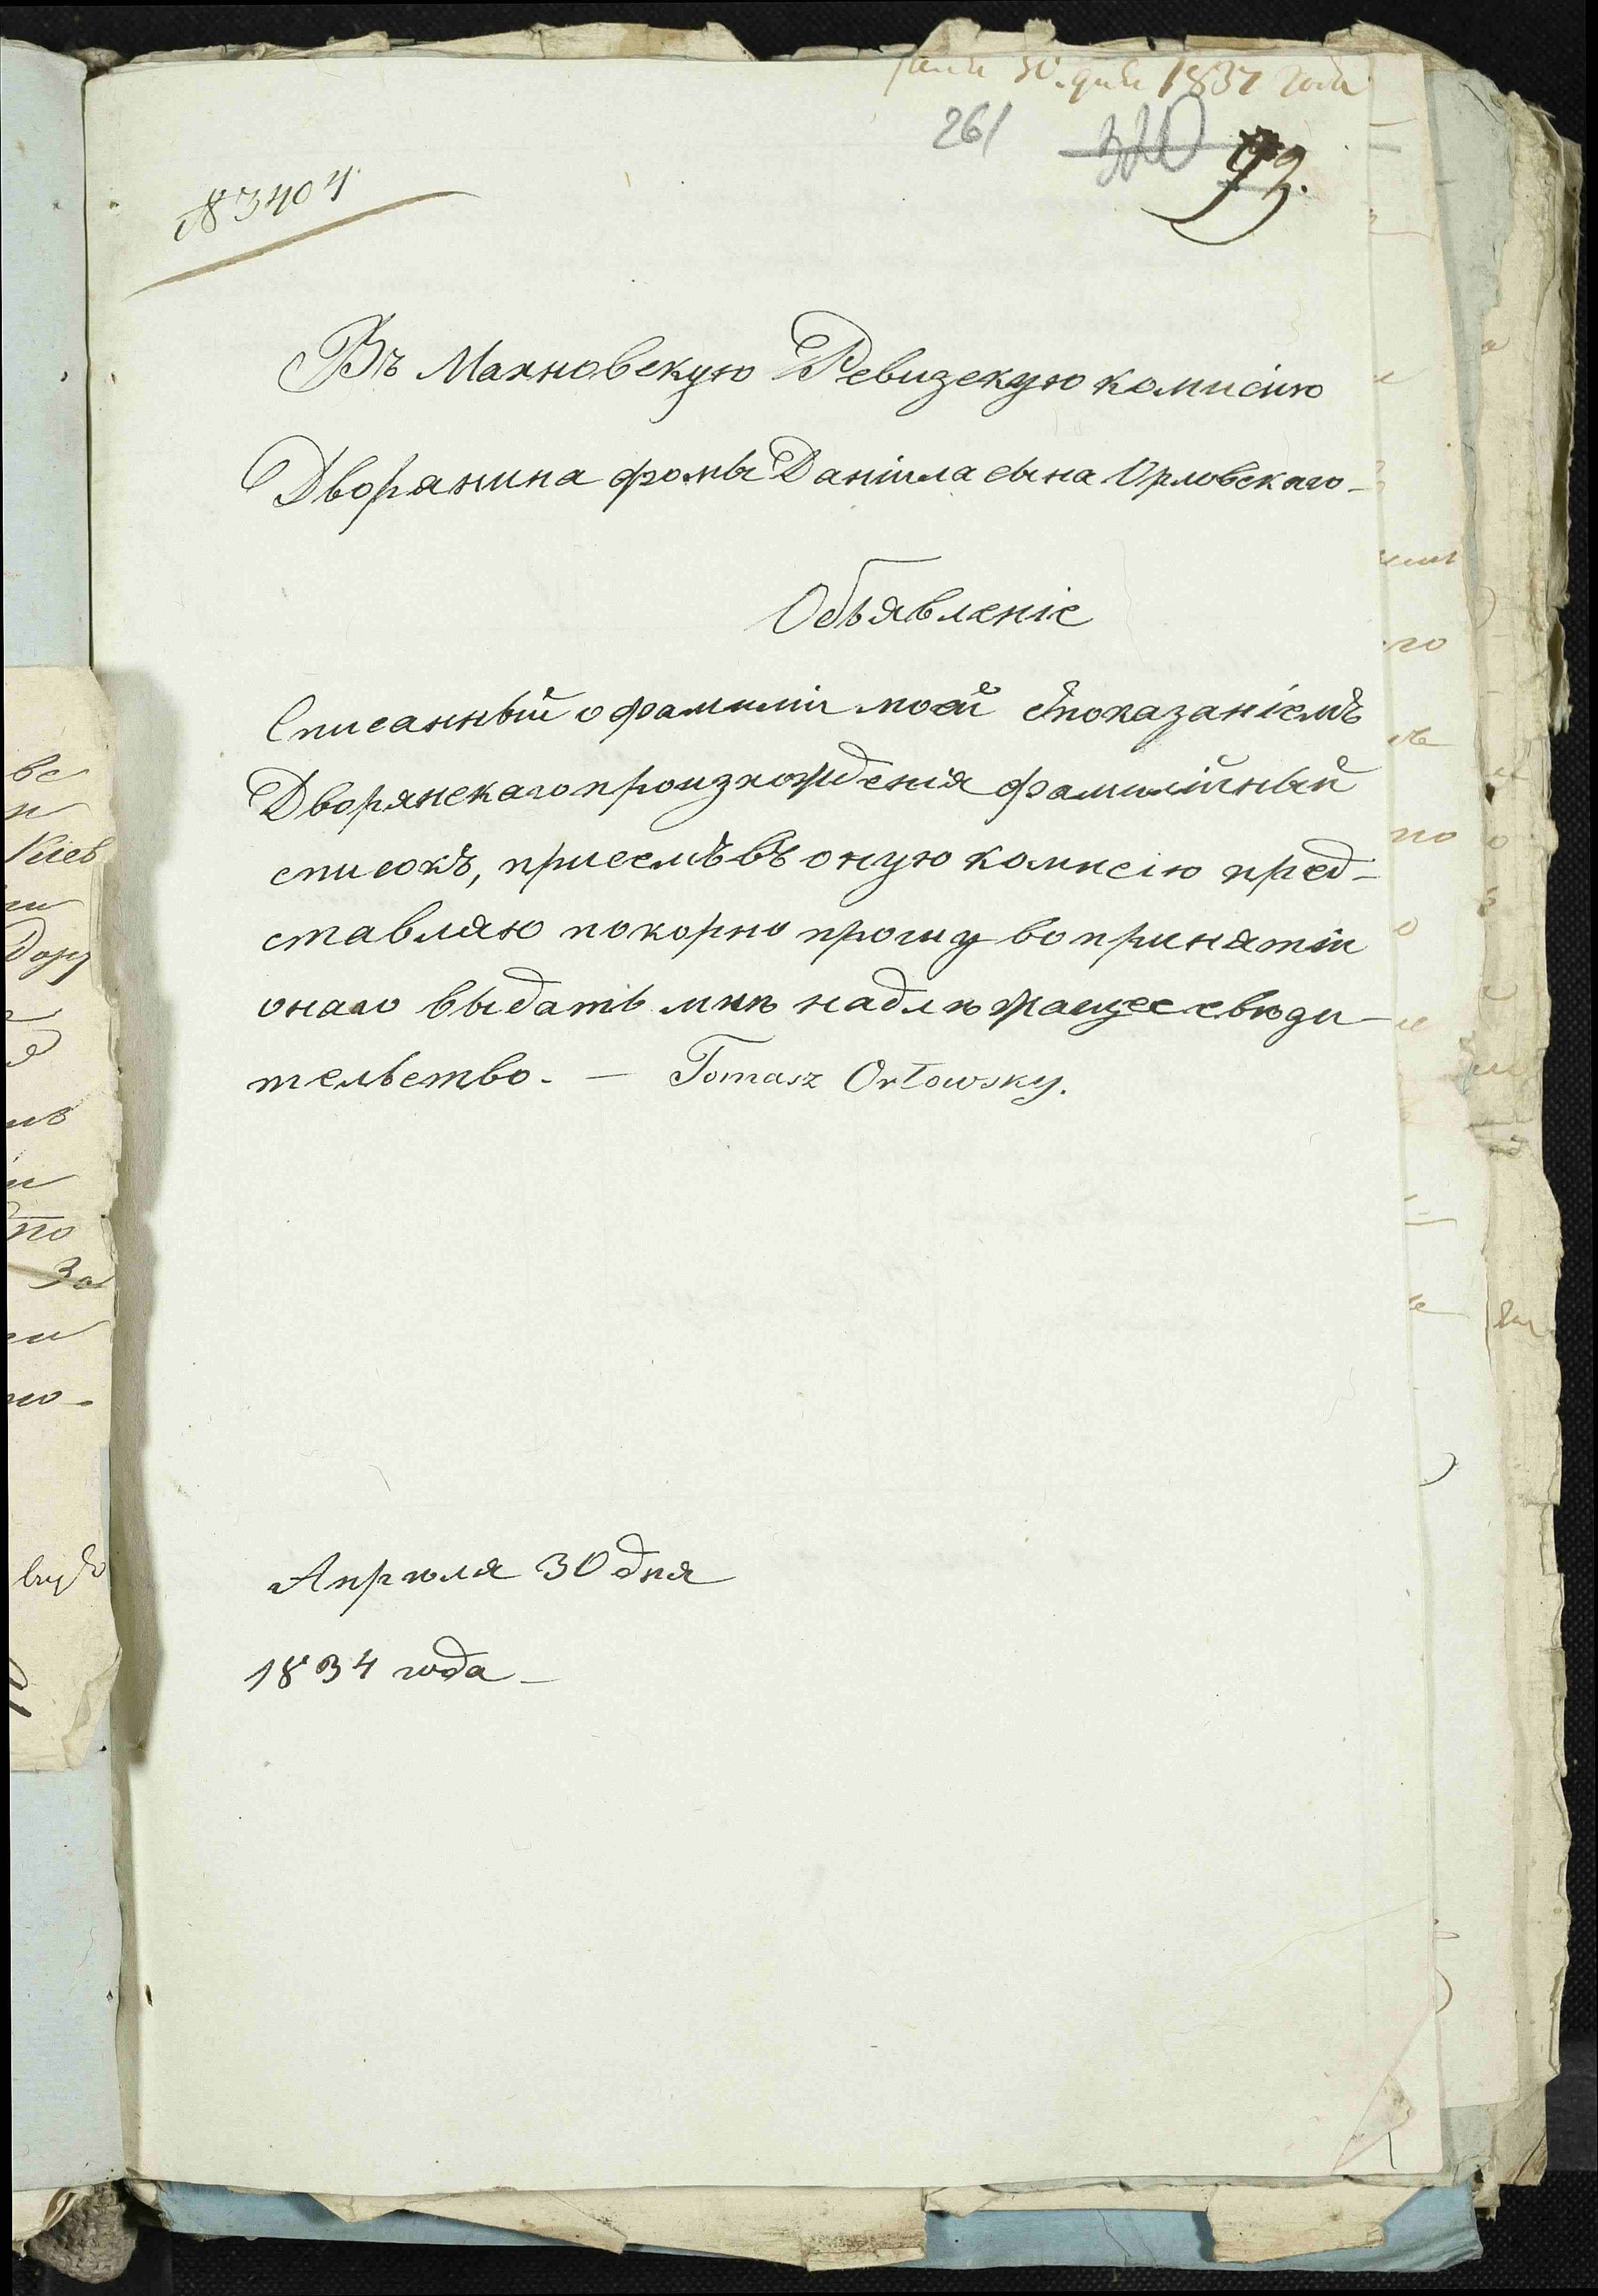 30. дня 1834 года
261 320 93.
№ 3404
Въ Махновскую Ревизскую комисію
Дворянина фомы Даніила сына Орловскаго –
Объявленіе
Списанный о фамиліи моей сп{о}казаніемъ
Дворянскаго произхожденія фамилійный
списокъ, присемъ въ оную комисію пред-
ставляю покорно прошу во принятіи
онаго выдать мнѣ надлѣжащее свѣди-
тельство. — Tomasz Orłowsky.
Апрѣля 30 дня
1834 года –